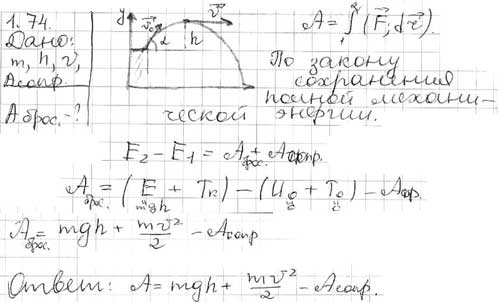 1.74.
Дано:
m, h, v,
Aсопр.
Aброс.-?
y v⃗₀ α h v⃗
A = ∫₁² (F⃗, dr⃗).
По закону
сохранения
полной механи-
ческой энергии.
E₂ - E₁ = Aброс. + Aсопр.
Aброс. = (E + Tк) - (U₀ + T₀) - Aсопр.
mgh 0 0
Aброс. = mgh + mv²/2 - Aсопр.
Ответ: A = mgh + mv²/2 - Aсопр.